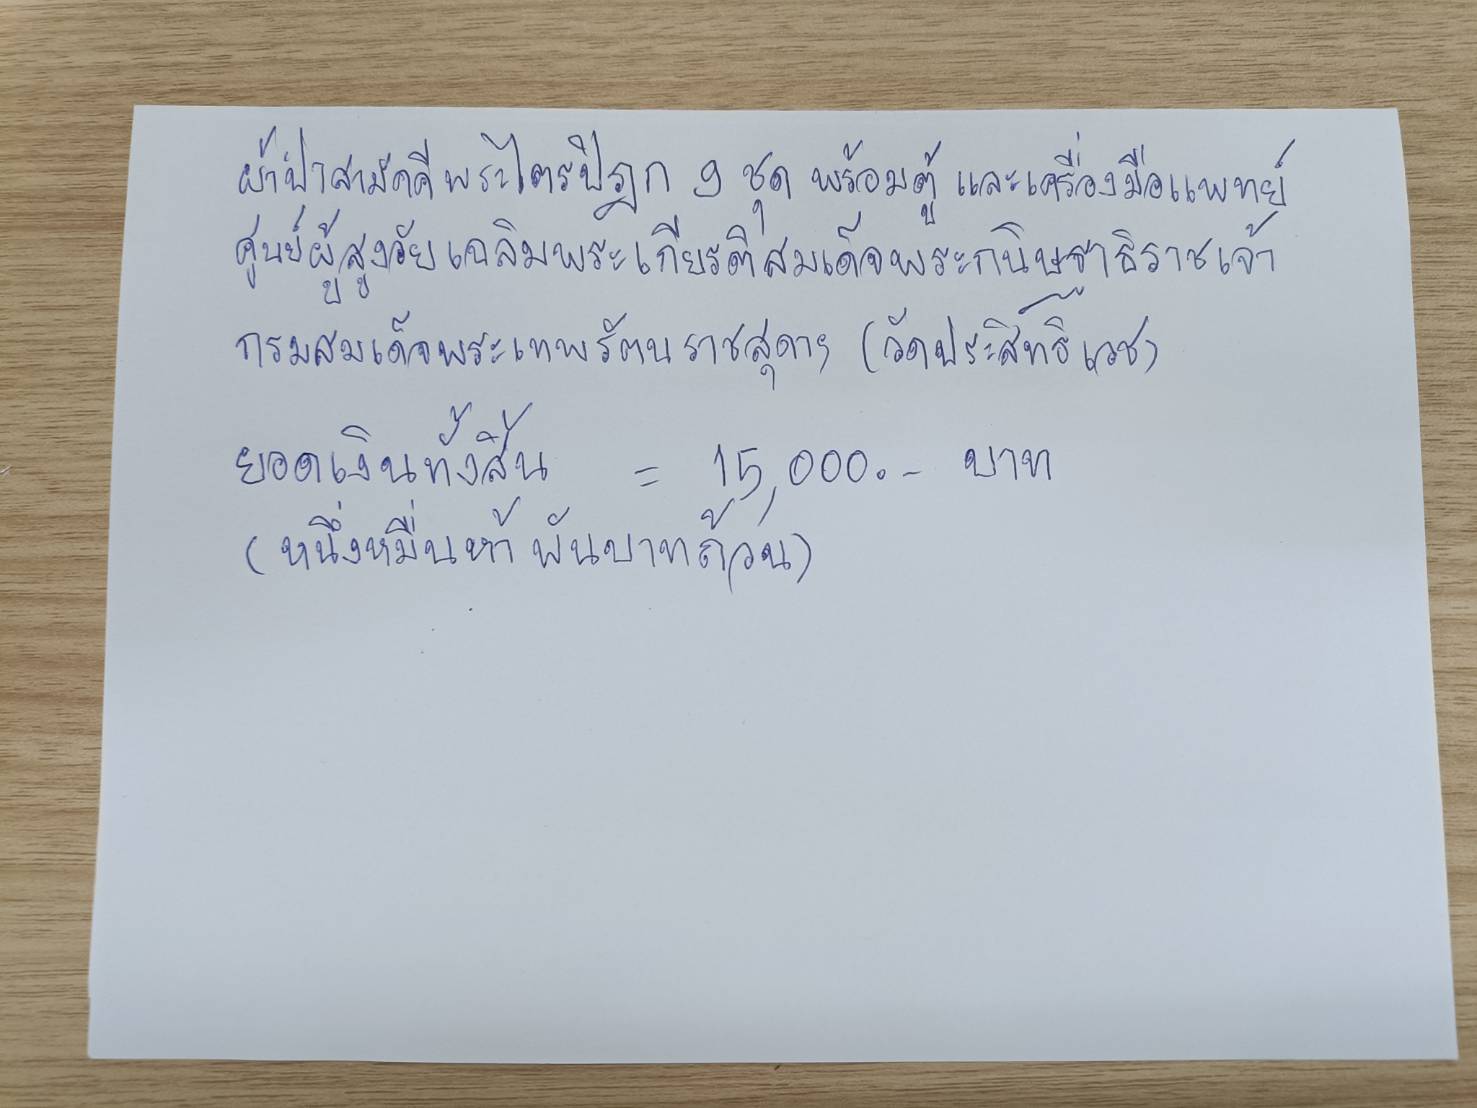 ผ้าป่าสามัคคีพระไตรปิฎก 9 ชุด พร้อมตู้ และเครื่องมือแพทย์
ศูนย์ผู้สูงวัยเฉลิมพระเกียรติสมเด็จพระกนิษฐาธิราชเจ้า
กรมสมเด็จพระเทพรัตนราชสุดาฯ (วัดประสิทธิ์เวช)
ยอดเงินทั้งสิ้น = 15,000.- บาท
(หนึ่งหมื่นห้าพันบาทถ้วน)